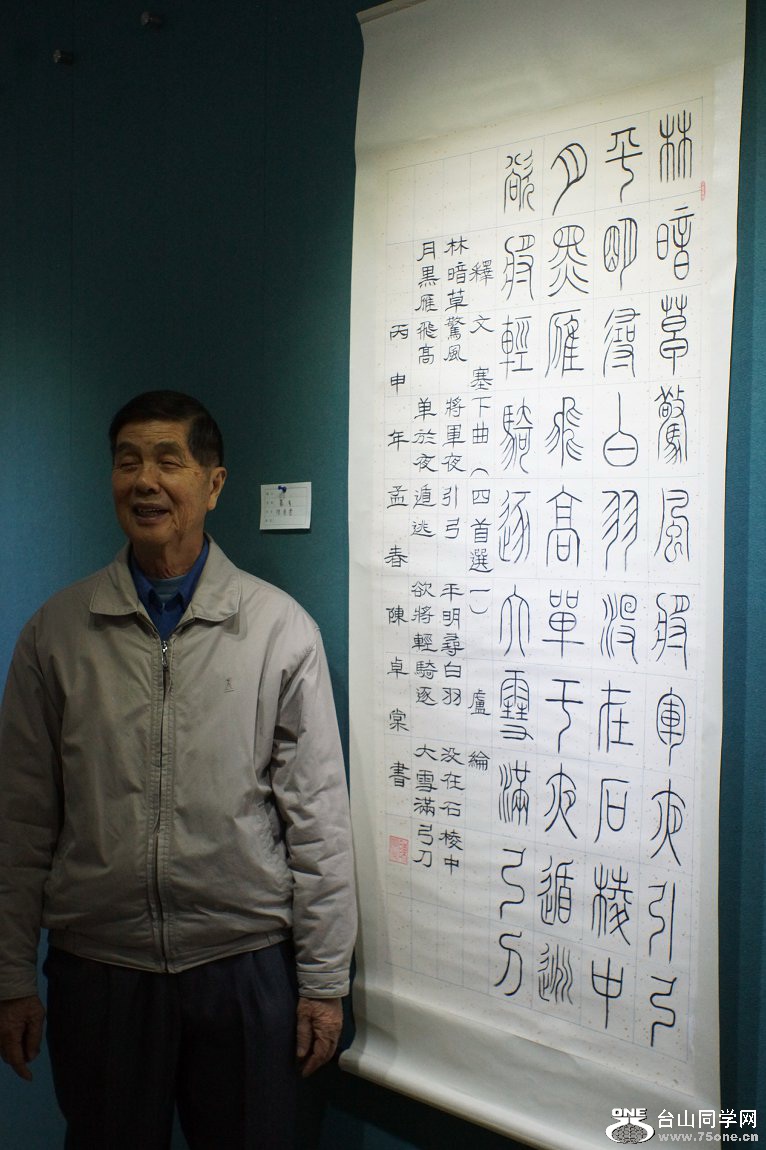 林暗草驚風將軍夜引弓
平明尋白羽没在石棱中
月黑雁飛高單于夜遁逃
欲將輕騎逐大雪滿弓刀
釋文 塞下曲(四首選一) 盧綸
林暗草驚風 將軍夜引弓 平明尋白羽 没在石棱中
月黑雁飛高 单於夜遁逃 欲將輕騎逐 大雪滿弓刀
丙申年孟春陳卓棠書
ONE 台山同学网
www.75one.cn